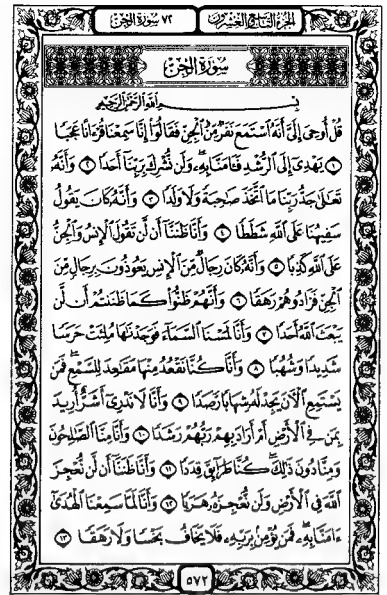 الجزء التاسع والعشرون
٧٢ سورة الجن
سورة الجن
بِسْمِ اللَّهِ الرَّحْمَٰنِ الرَّحِيمِ
قُلْ أُوحِيَ إِلَيَّ أَنَّهُ اسْتَمَعَ نَفَرٌ مِّنَ الْجِنِّ فَقَالُوا إِنَّا سَمِعْنَا قُرْآنًا عَجَبًا
١ يَهْدِي إِلَى الرُّشْدِ فَآمَنَّا بِهِ ۖ وَلَن نُّشْرِكَ بِرَبِّنَا أَحَدًا ٢ وَأَنَّهُ
تَعَالَىٰ جَدُّ رَبِّنَا مَا اتَّخَذَ صَاحِبَةً وَلَا وَلَدًا ٣ وَأَنَّهُ كَانَ يَقُولُ
سَفِيهُنَا عَلَى اللَّهِ شَطَطًا ٤ وَأَنَّا ظَنَنَّا أَن لَّن تَقُولَ الْإِنسُ وَالْجِنُّ
عَلَى اللَّهِ كَذِبًا ٥ وَأَنَّهُ كَانَ رِجَالٌ مِّنَ الْإِنسِ يَعُوذُونَ بِرِجَالٍ مِّنَ
الْجِنِّ فَزَادُوهُمْ رَهَقًا ٦ وَأَنَّهُمْ ظَنُّوا كَمَا ظَنَنتُمْ أَن لَّن
يَبْعَثَ اللَّهُ أَحَدًا ٧ وَأَنَّا لَمَسْنَا السَّمَاءَ فَوَجَدْنَاهَا مُلِئَتْ حَرَسًا
شَدِيدًا وَشُهُبًا ٨ وَأَنَّا كُنَّا نَقْعُدُ مِنْهَا مَقَاعِدَ لِلسَّمْعِ ۖ فَمَن
يَسْتَمِعِ الْآنَ يَجِدْ لَهُ شِهَابًا رَّصَدًا ٩ وَأَنَّا لَا نَدْرِي أَشَرٌّ أُرِيدَ
بِمَن فِي الْأَرْضِ أَمْ أَرَادَ بِهِمْ رَبُّهُمْ رَشَدًا ١٠ وَأَنَّا مِنَّا الصَّالِحُونَ
وَمِنَّا دُونَ ذَٰلِكَ ۖ كُنَّا طَرَائِقَ قِدَدًا ١١ وَأَنَّا ظَنَنَّا أَن لَّن نُّعْجِزَ
اللَّهَ فِي الْأَرْضِ وَلَن نُّعْجِزَهُ هَرَبًا ١٢ وَأَنَّا لَمَّا سَمِعْنَا الْهُدَىٰ
آمَنَّا بِهِ ۖ فَمَن يُؤْمِن بِرَبِّهِ فَلَا يَخَافُ بَخْسًا وَلَا رَهَقًا ١٣
٥٧٢